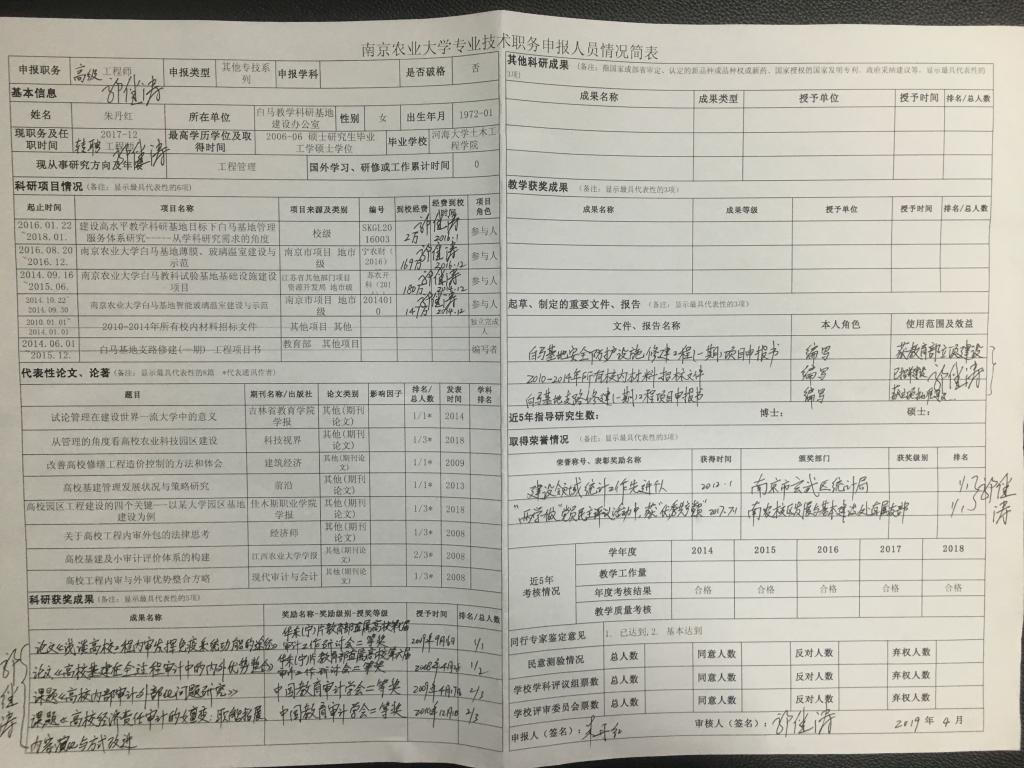 南京农业大学专业技术职务申报人员情况简表
申报职务 高级 工程师 申报类型 其他专技系列 申报学科 是否破格 否
基本信息
姓名 朱丹红 所在单位 白马教学科研基地建设办公室 性别 女 出生年月 1972-01
现职务及任职时间 2017-12 转聘 工程师 最高学历学位及取得时间 2006-06 硕士研究生毕业 工学硕士学位 毕业学校 河海大学土木工程学院
现从事研究方向及年限 工程管理 国外学习、研修或工作累计时间 0
科研项目情况 (备注: 显示最具代表性的6项)
起止时间 项目名称 项目来源及类别 编号 到校经费 经费到校时间 项目角色
2016.01.22~2018.01. 建设高水平教学科研基地目标下白马基地管理服务体系研究-----从学科研究需求的角度 校级 SKGL2016003 2万 2016.1 参与人
2016.08.20~2016.12. 南京农业大学白马基地薄膜、玻璃温室建设与示范 南京市项目 地市级 宁农财(2016) 169万 2016.12 参与人
2014.09.16~2015.06. 南京农业大学白马教科试验基地基础设施建设项目 江苏省其他部门项目 资源开发局 地市级 苏农开科(201 180万 2014.12 参与人
2014.10.22~2014.09.30 南京农业大学白马基地智能玻璃温室建设与示范 南京市项目 地市级 2014010 149万 2014.12 参与人
2010.01.01~2014.01.01 2010-2014年所有校内材料招标文件 其他项目 其他 独立完成人
2014.06.01~2015.12. 白马基地支路修建(一期) 工程项目书 教育部 其他项目 编写者
代表性论文、论著 (备注: 显示最具代表性的8篇 *代表通讯作者)
题目 期刊名称/出版社 论文类别 影响因子 排名/总人数 发表时间 学科排名
试论管理在建设世界一流大学中的意义 吉林省教育学院学报 其他(期刊论文) 1/1* 2014
从管理的角度看高校农业科技园区建设 科技视界 其他(期刊论文) 1/3* 2018
改善高校修缮工程造价控制的方法和体会 建筑经济 其他(期刊论文) 1/1* 2009
高校基建管理发展状况与策略研究 前沿 其他(期刊论文) 1/1* 2013
高校园区工程建设的四个关键——以某大学园区基地建设为例 佳木斯职业学院学报 其他(期刊论文) 1/3* 2018
关于高校工程内审外包的法律思考 经济师 其他(期刊论文) 1/3* 2008
高校基建及小审计评价体系的构建 江西农业大学学报 其他(期刊论文) 2/3* 2008
高校工程内审与外审优势整合方略 现代审计与会计 其他(期刊论文) 1/3* 2008
科研获奖成果 (备注: 显示最具代表性的5项)
成果名称 奖励名称-奖励级别-授奖等级 授予时间 排名/总人数
论文《浅谈高校工程内审发挥免疫系统功能的途径》 华东(宁)片教育部直属高校第七届审计工作研讨会二等奖 2009年9月6日 1/1
论文《高校基建任全过程审计中的内外优势整合》 华东(宁)片教育部直属高校第六届审计工作研讨会二等奖 2008年4月 1/2
课题《高校内部审计外部化问题研究》 中国教育审计学会二等奖 2009年4月7日 2/3
课题《高校经济责任审计的嬗变: 职能拓展、内容演进与方式改进 中国教育审计学会二等奖 2010年12月10日 2/3
其他科研成果 (备注: 指国家或部省审定、认定的新品种或品种权或新药、国家授权的国家发明专利、政府采纳建议等。显示最具代表性的3项)
成果名称 成果类型 授予单位 授予时间 排名/总人数
教学获奖成果 (备注: 显示最具代表性的3项)
成果名称 成果等级 授予单位 授予时间 排名/总人数
起草、制定的重要文件、报告 (备注: 显示最具代表性的3项)
文件、报告名称 本人角色 使用范围及效益
白马基地安全防护设施修建工程(一期)项目申报书 编写 获教育部立项建设
2010-2014年所有校内材料招标文件 编写
白马基地支路修建(一期)工程项目申报书 编写
近5年指导研究生数: 博士: 硕士:
取得荣誉情况 (备注: 显示最具代表性的3项)
荣誉称号、表彰奖励名称 获得时间 颁奖部门 获奖级别 排名
建设领域统计工作先进个人 2012.1 南京市玄武区统计局
"两学一做"党员民主评议活动中,获"优秀党员" 2017.7.1
近5年考核情况 学年度 2014 2015 2016 2017 2018
教学工作量
年度考核结果 合格 合格 合格 合格 合格
教学质量考核
同行专家鉴定意见 1. 已达到,2. 基本达到
民意测验情况 总人数 同意人数 反对人数 弃权人数
学校学科评议组票数 总人数 同意人数 反对人数 弃权人数
学校评审委员会票数 总人数 同意人数 反对人数 弃权人数
申报人(签名): 朱丹红 审核人(签名): 2019年 4月